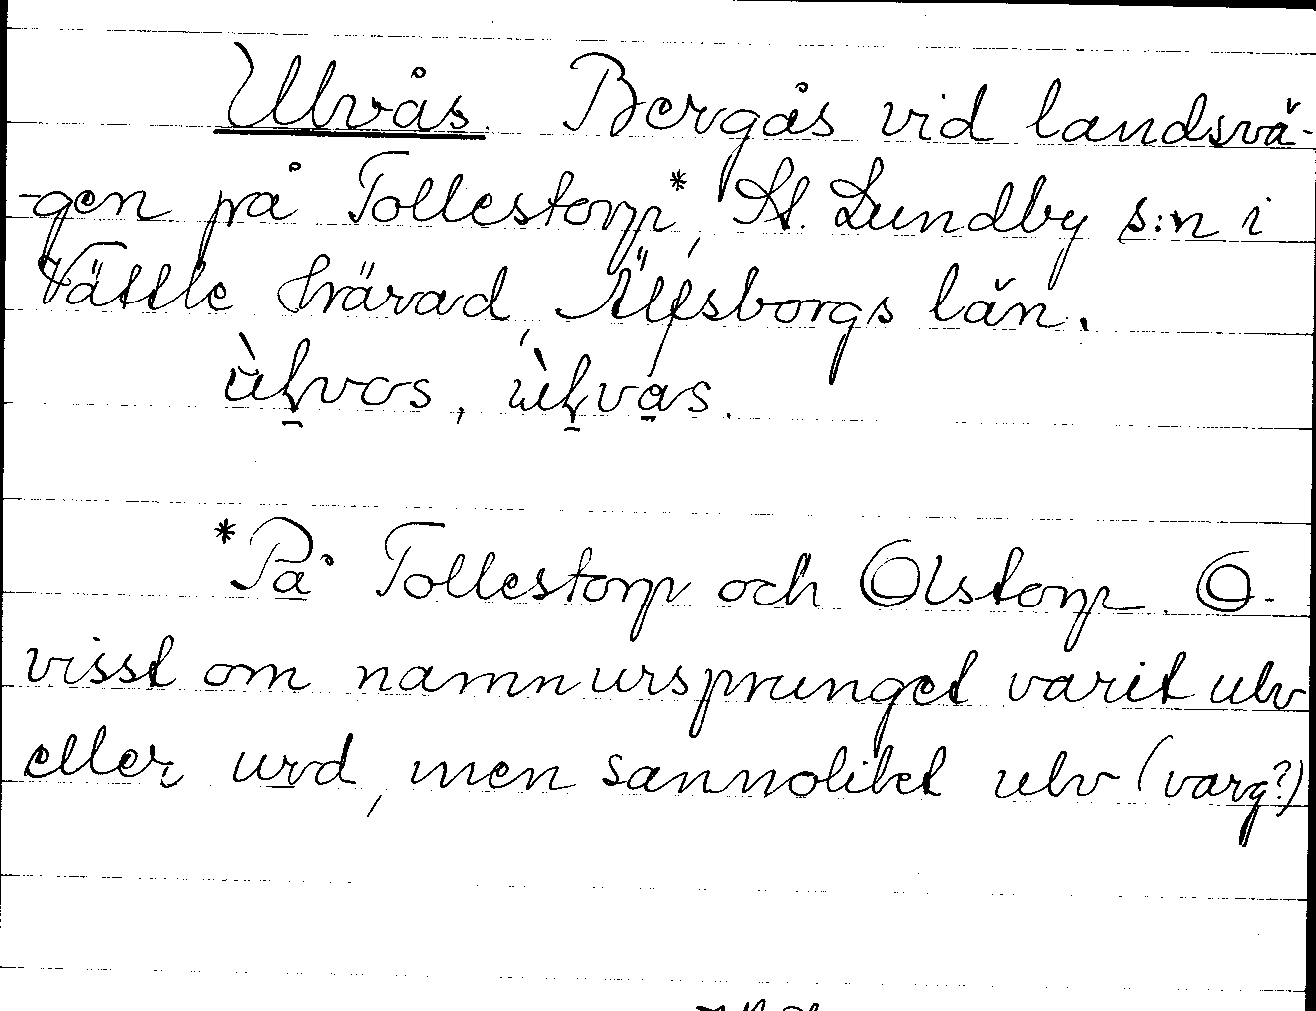 Ulvås. Bergås vid landsvä-
-gen på Tollestorp*, St. Lundby s:n i
Vättle härad, Älfsborgs län.
ùḻvos, ùḻva̱s.
*På Tollestorp och Olstorp. O-
visst om namnursprunget varit ulv
eller urd, men sannolikt ulv (varg?)